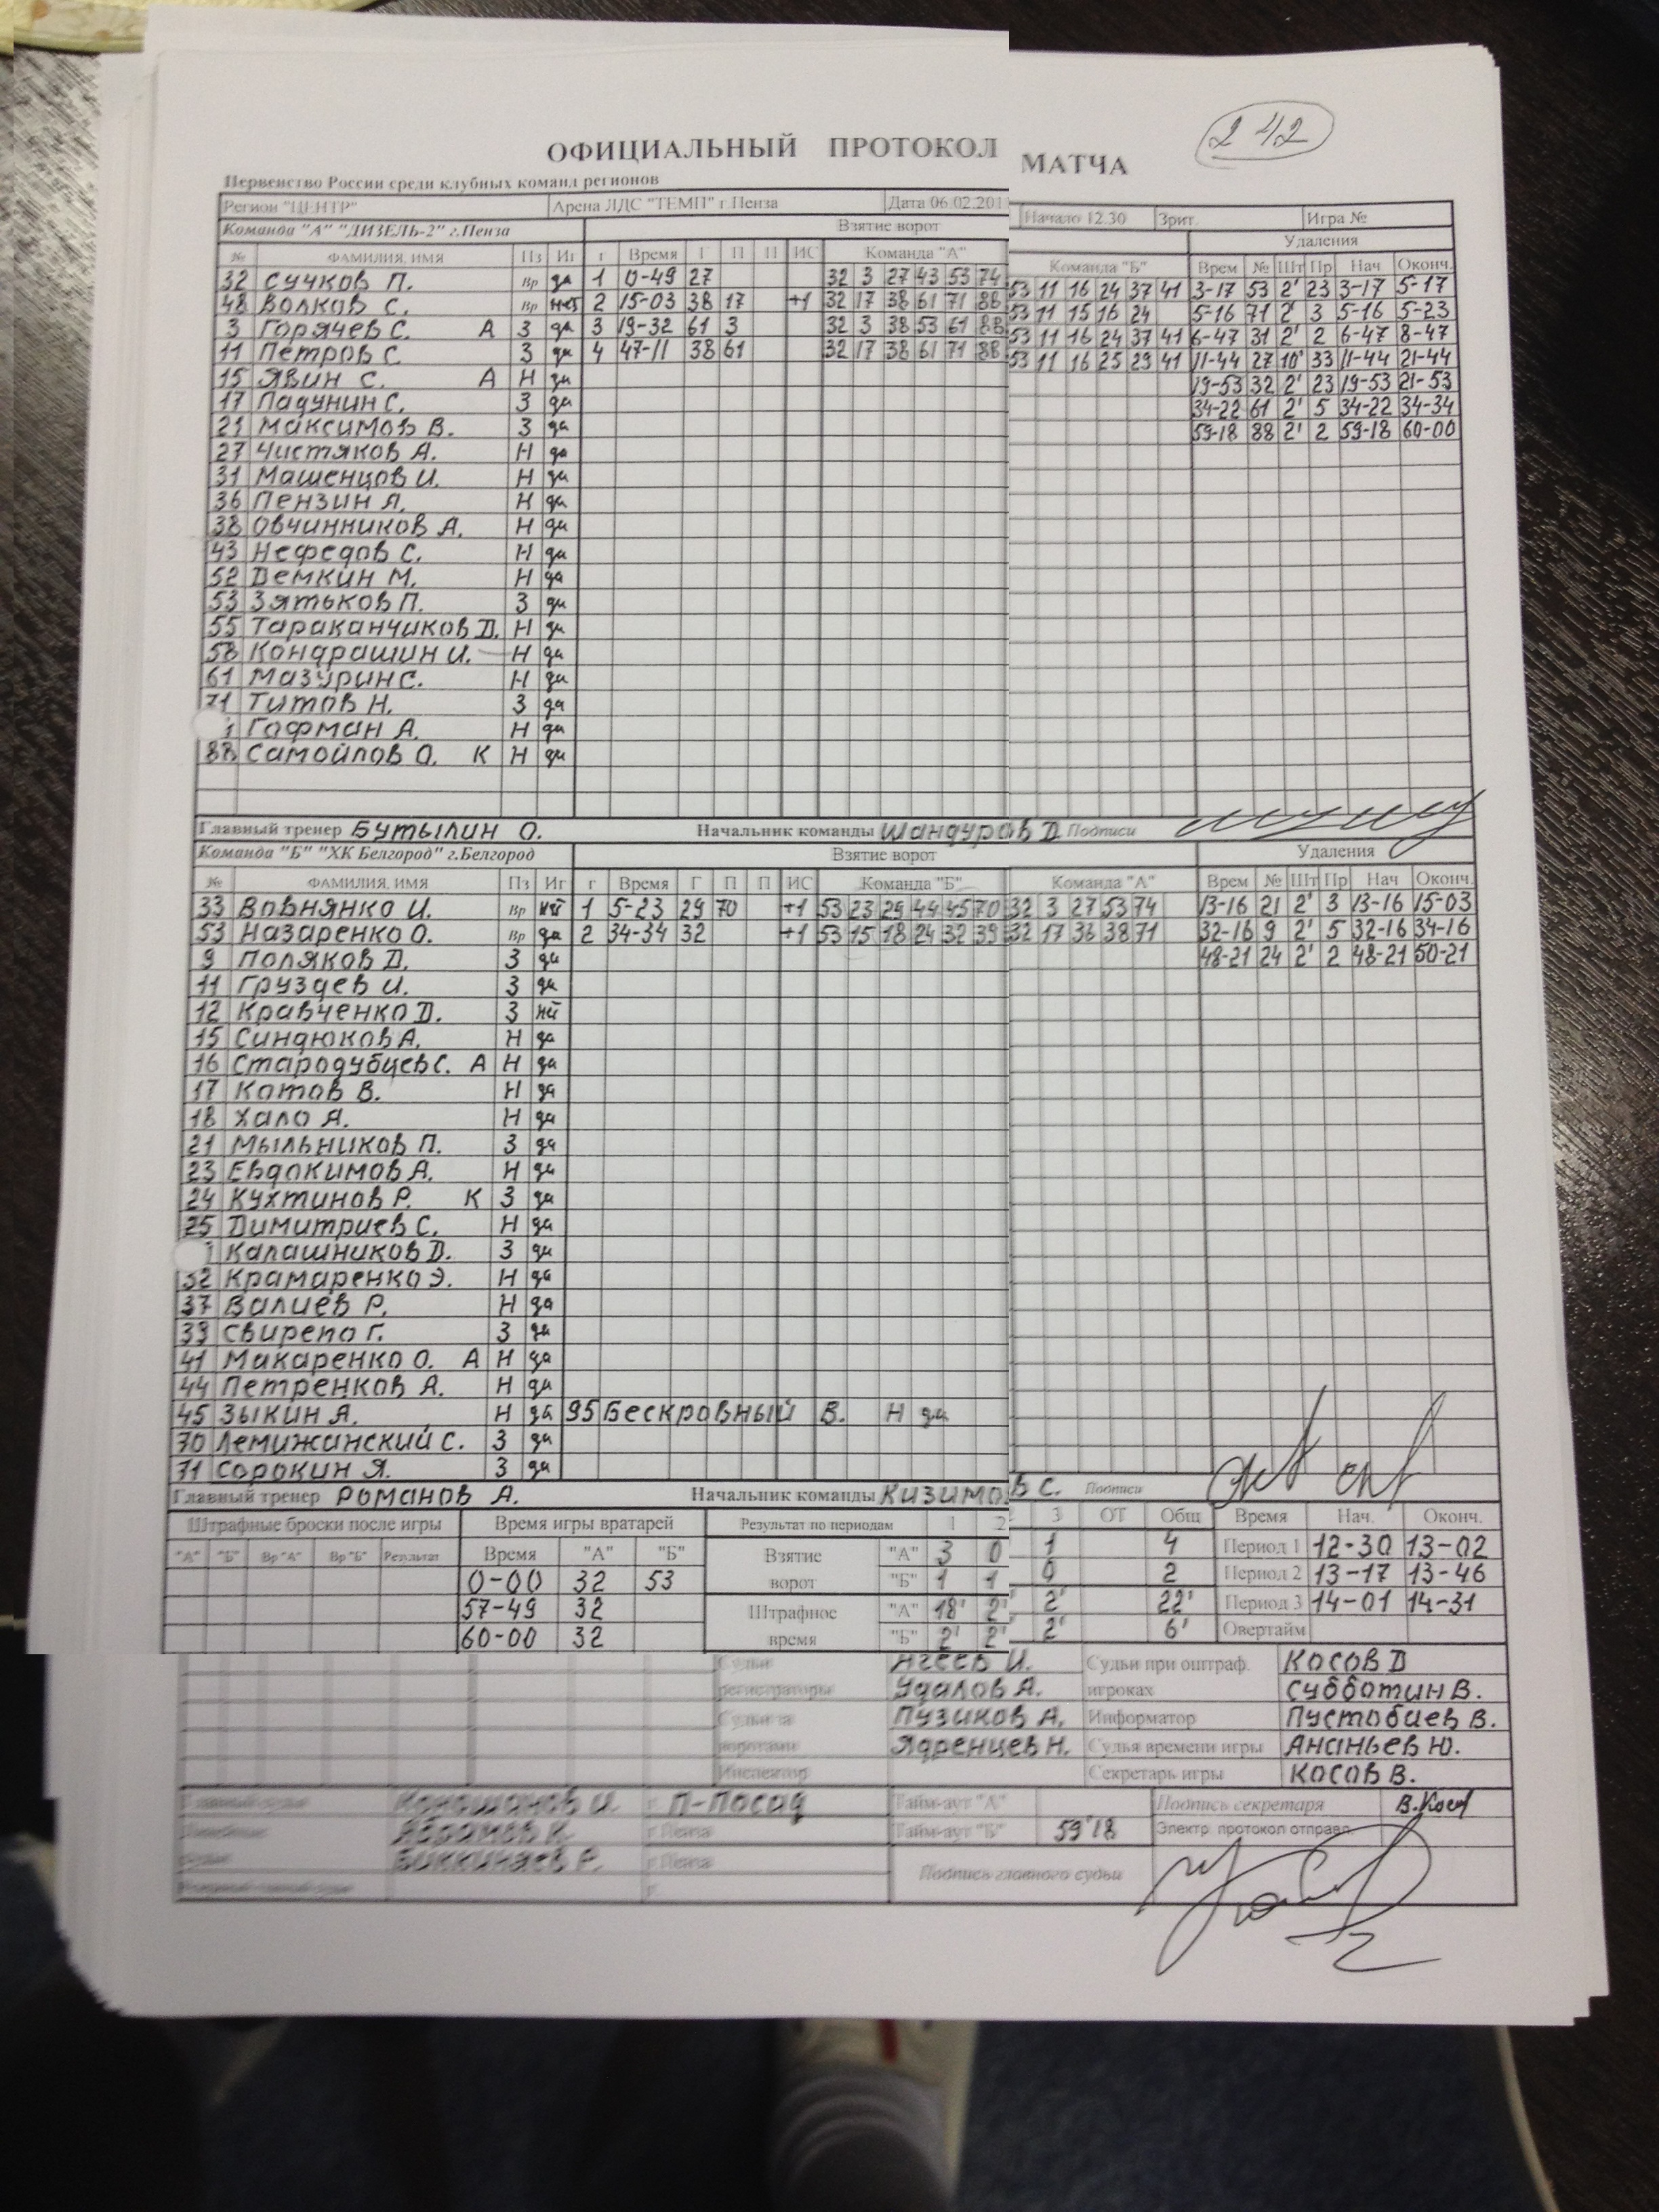 242
ОФИЦИАЛЬНЫЙ ПРОТОКОЛ МАТЧА
Первенство России среди клубных команд регионов
Регион "ЦЕНТР" Арена ЛДС "ТЕМП" г.Пенза Дата 06.02.201 Начало 12.30 Зрит. Игра №
Команда "А" "ДИЗЕЛЬ-2" г.Пенза Взятие ворот Удаления
№ ФАМИЛИЯ, ИМЯ Пз Иг г Время Г П П ИС Команда "А" Команда "Б" Врем № Шт Пр Нач Оконч.
32 Сучков П. Вр да 1 0-49 27 32 3 27 43 53 74 53 11 16 24 37 41 3-17 53 2' 23 3-17 5-17
48 Волков С. Вр нет 2 15-03 38 17 +1 32 17 38 61 71 88 53 11 15 16 24 5-16 71 2' 3 5-16 5-23
3 Горячев С. А З да 3 19-32 61 3 32 3 38 53 61 88 53 11 16 24 37 41 6-47 31 2' 2 6-47 8-47
11 Петров С. З да 4 47-11 38 61 32 17 38 61 71 88 53 11 16 25 29 41 11-44 27 10' 33 11-44 21-44
15 Явин С. А Н да 19-53 32 2' 23 19-53 21-53
17 Падунин С. З да 34-22 61 2' 5 34-22 34-34
21 Максимов В. З да 59-18 88 2' 2 59-18 60-00
27 Чистяков А. Н да
31 Машенцов И. Н да
36 Пензин А. Н да
38 Овчинников А. Н да
43 Нефедов С. Н да
52 Демкин М. Н да
53 Зятьков П. З да
55 Тараканчиков Д. Н да
58 Кондрашин И. Н да
61 Мазурин С. Н да
71 Титов Н. З да
Гофман А. Н да
88 Самойлов О. К Н да
Главный тренер Бутылин О. Начальник команды Шандуров Д Подписи
Команда "Б" "ХК Белгород" г.Белгород Взятие ворот Удаления
№ ФАМИЛИЯ, ИМЯ Пз Иг г Время Г П П ИС Команда "Б" Команда "А" Врем № Шт Пр Нач Оконч.
33 Вовнянко И. Вр нет 1 5-23 29 70 +1 53 23 29 44 45 70 32 3 27 53 74 13-16 21 2' 3 13-16 15-03
53 Назаренко О. Вр да 2 34-34 32 +1 53 15 18 24 32 39 32 17 36 38 71 32-16 9 2' 5 32-16 34-16
9 Поляков Д. З да 48-21 24 2' 2 48-21 50-21
11 Груздев И. З да
12 Кравченко Д. З нет
15 Синдюков А. Н да
16 Стародубцев С. А Н да
17 Котов В. Н да
18 Хало Я. Н да
21 Мыльников П. З да
23 Евдокимов А. Н да
24 Кухтинов Р. К З да
25 Димитриев С. Н да
Калашников Д. З да
32 Крамаренко Э. Н да
37 Валиев Р. Н да
39 Свирепо Г. З да
41 Макаренко О. А Н да
44 Петренков А. Н да
45 Зыкин А. Н да 95 Бескровный В. Н да
70 Лемижанский С. З да
71 Сорокин Я. З да
Главный тренер Романов А. Начальник команды Кизимов С. Подписи
Штрафные броски после игры Время игры вратарей Результат по периодам 1 2 3 ОТ Общ Время Нач. Оконч.
"А" "Б" Вр "А" Вр "Б" Результат Время "А" "Б" Взятие "А" 3 0 1 4 Период 1 12-30 13-02
0-00 32 53 ворот "Б" 1 1 0 2 Период 2 13-17 13-46
57-49 32 Штрафное "А" 18' 2' 2' 22' Период 3 14-01 14-31
60-00 32 время "Б" 2' 2' 2' 6' Овертайм
Судьи Агеев И. Судьи при оштраф. Косов Д
регистраторы Удалов А. игроках Субботин В.
Судьи за Пузиков А. Информатор Пустобаев В.
воротами Ядренцев Н. Судья времени игры Ананьев Ю.
Инспектор Секретарь игры Косов В.
Главный судья И. г. П-Посад Тайм-аут "А" Подпись секретаря В.Косов
Линейные г.Пенза Тайм-аут "Б" 59'18 Электр. протокол отправл.
судьи Биккиняев Р. г.Пенза Подпись главного судьи